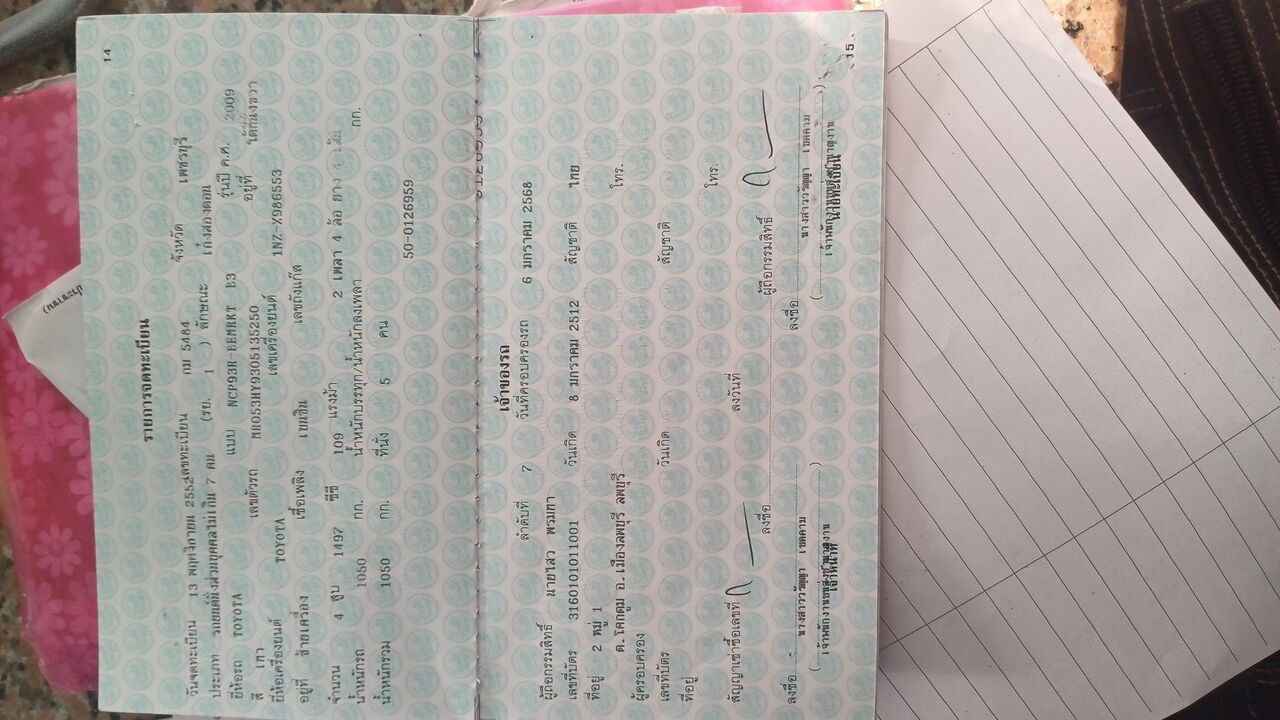 14
รายการจดทะเบียน
วันจดทะเบียน 13 พฤศจิกายน 2552 เลขทะเบียน กม 5484 จังหวัด เพชรบุรี
ประเภท รถยนต์นั่งส่วนบุคคลไม่เกิน 7 คน (รย. 1 ) ลักษณะ เก๋งสองตอน
ยี่ห้อรถ TOYOTA แบบ NCP93R-BEMRKT B3 รุ่นปี ค.ศ. 2009
สี เทา เลขตัวรถ MR053HY9305135250 อยู่ที่ ใต้ที่นั่งขวา
ยี่ห้อเครื่องยนต์ TOYOTA เลขเครื่องยนต์ 1NZ-X986553
อยู่ที่ ซ้ายเครื่อง เชื้อเพลิง เบนซิน เลขถังแก๊ส
จำนวน 4 สูบ 1497 ซีซี 109 แรงม้า 2 เพลา 4 ล้อ ยาง 4 เส้น
น้ำหนักรถ 1050 กก. น้ำหนักบรรทุก/น้ำหนักลงเพลา กก.
น้ำหนักรวม 1050 กก. ที่นั่ง 5 คน
50-0126959
เจ้าของรถ
ลำดับที่ 7 วันที่ครอบครองรถ 6 มกราคม 2568
ผู้ถือกรรมสิทธิ์ นายไสว พรมทา
เลขที่บัตร 3160101011001 วันเกิด 8 มกราคม 2512 สัญชาติ ไทย
ที่อยู่ 2 หมู่ 1 โทร.
ต.โคกตูม อ.เมืองลพบุรี ลพบุรี
ผู้ครอบครอง
เลขที่บัตร วันเกิด สัญชาติ
ที่อยู่ โทร.
สัญญาเช่าซื้อเลขที่ ลงวันที่
ลงชื่อ ผู้ถือกรรมสิทธิ์
ลงชื่อ ลงชื่อ
15